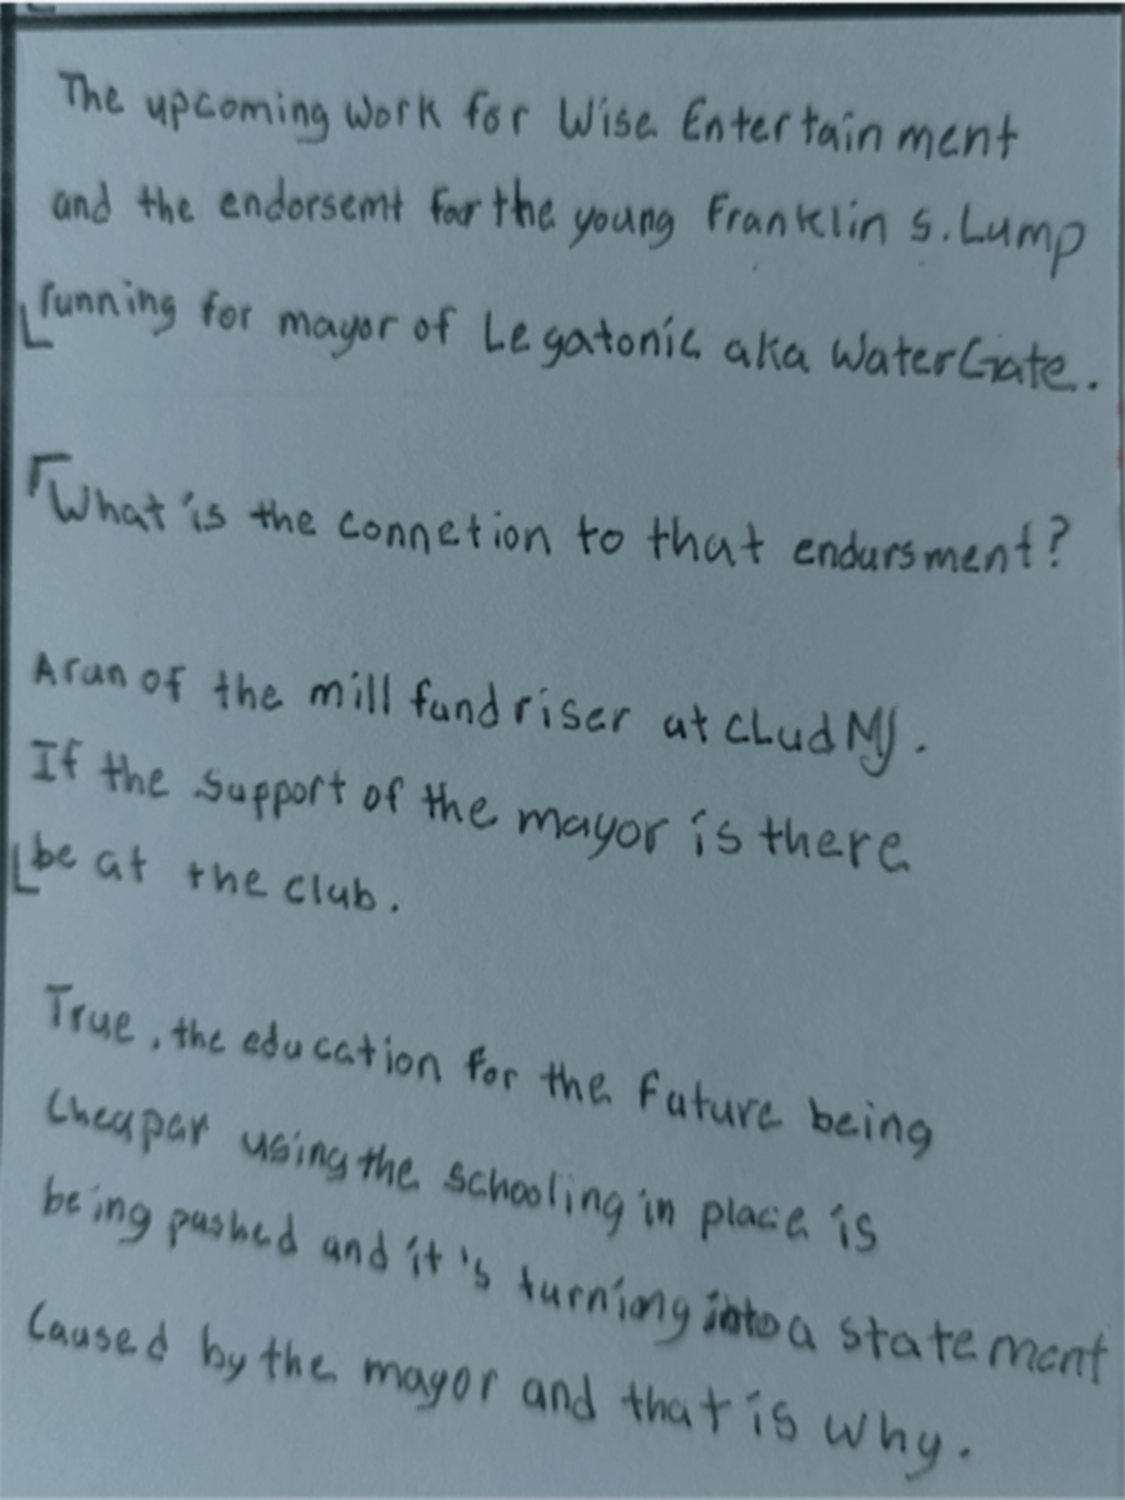 The upcoming work for Wise Entertainment
and the endorsemt for the young Franklin S. Lump
running for mayor of Legatonic aka WaterGate.
What is the connetion to that endursment?
A run of the mill fundriser at cLud MJ.
If the support of the mayor is there
be at the club.
True, the education for the future being
cheaper using the schooling in place is
being pushed and it's turniong into a statement
caused by the mayor and that is why.